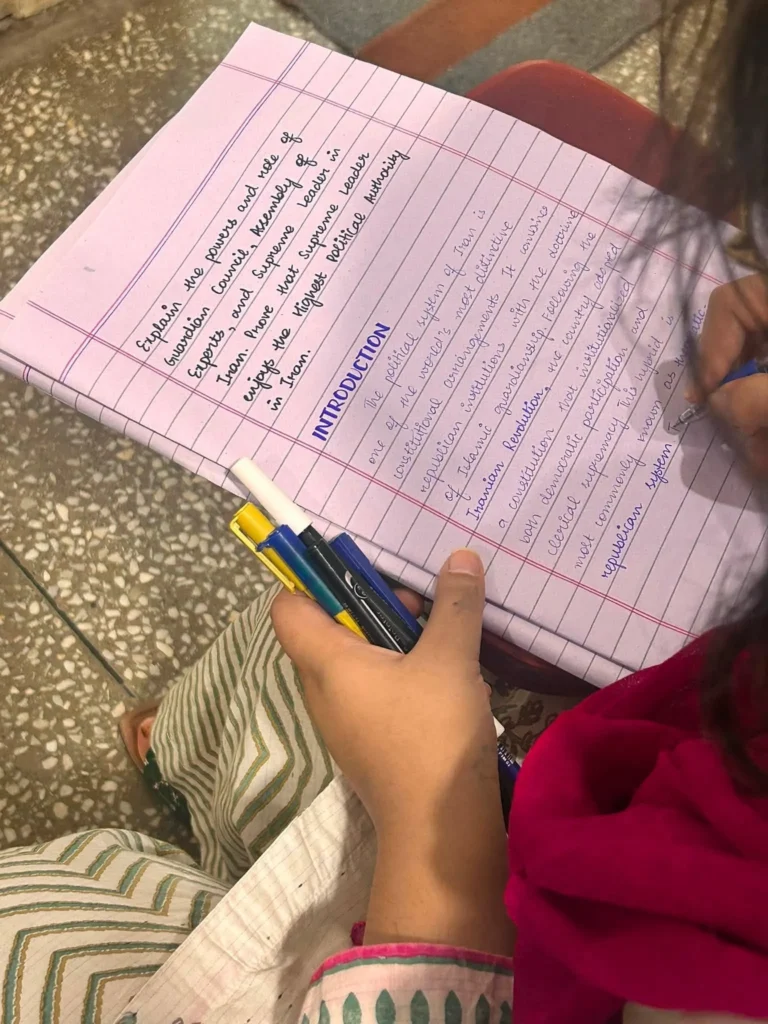 Explain the powers and role of
Guardian Council, Assembly of
Experts, and Supreme Leader in
Iran. Prove that Supreme Leader
enjoys the Highest Political Authority
in Iran.
INTRODUCTION
The political system of Iran is
one of the world's most distinctive
constitutional arrangements. It combines
republican institutions with the doctrine
of Islamic guardianship. Following the
Iranian Revolution, the country adopted
a constitution that institutionalized
both democratic participation and
clerical supremacy. This hybrid is
most commonly known as
republican system